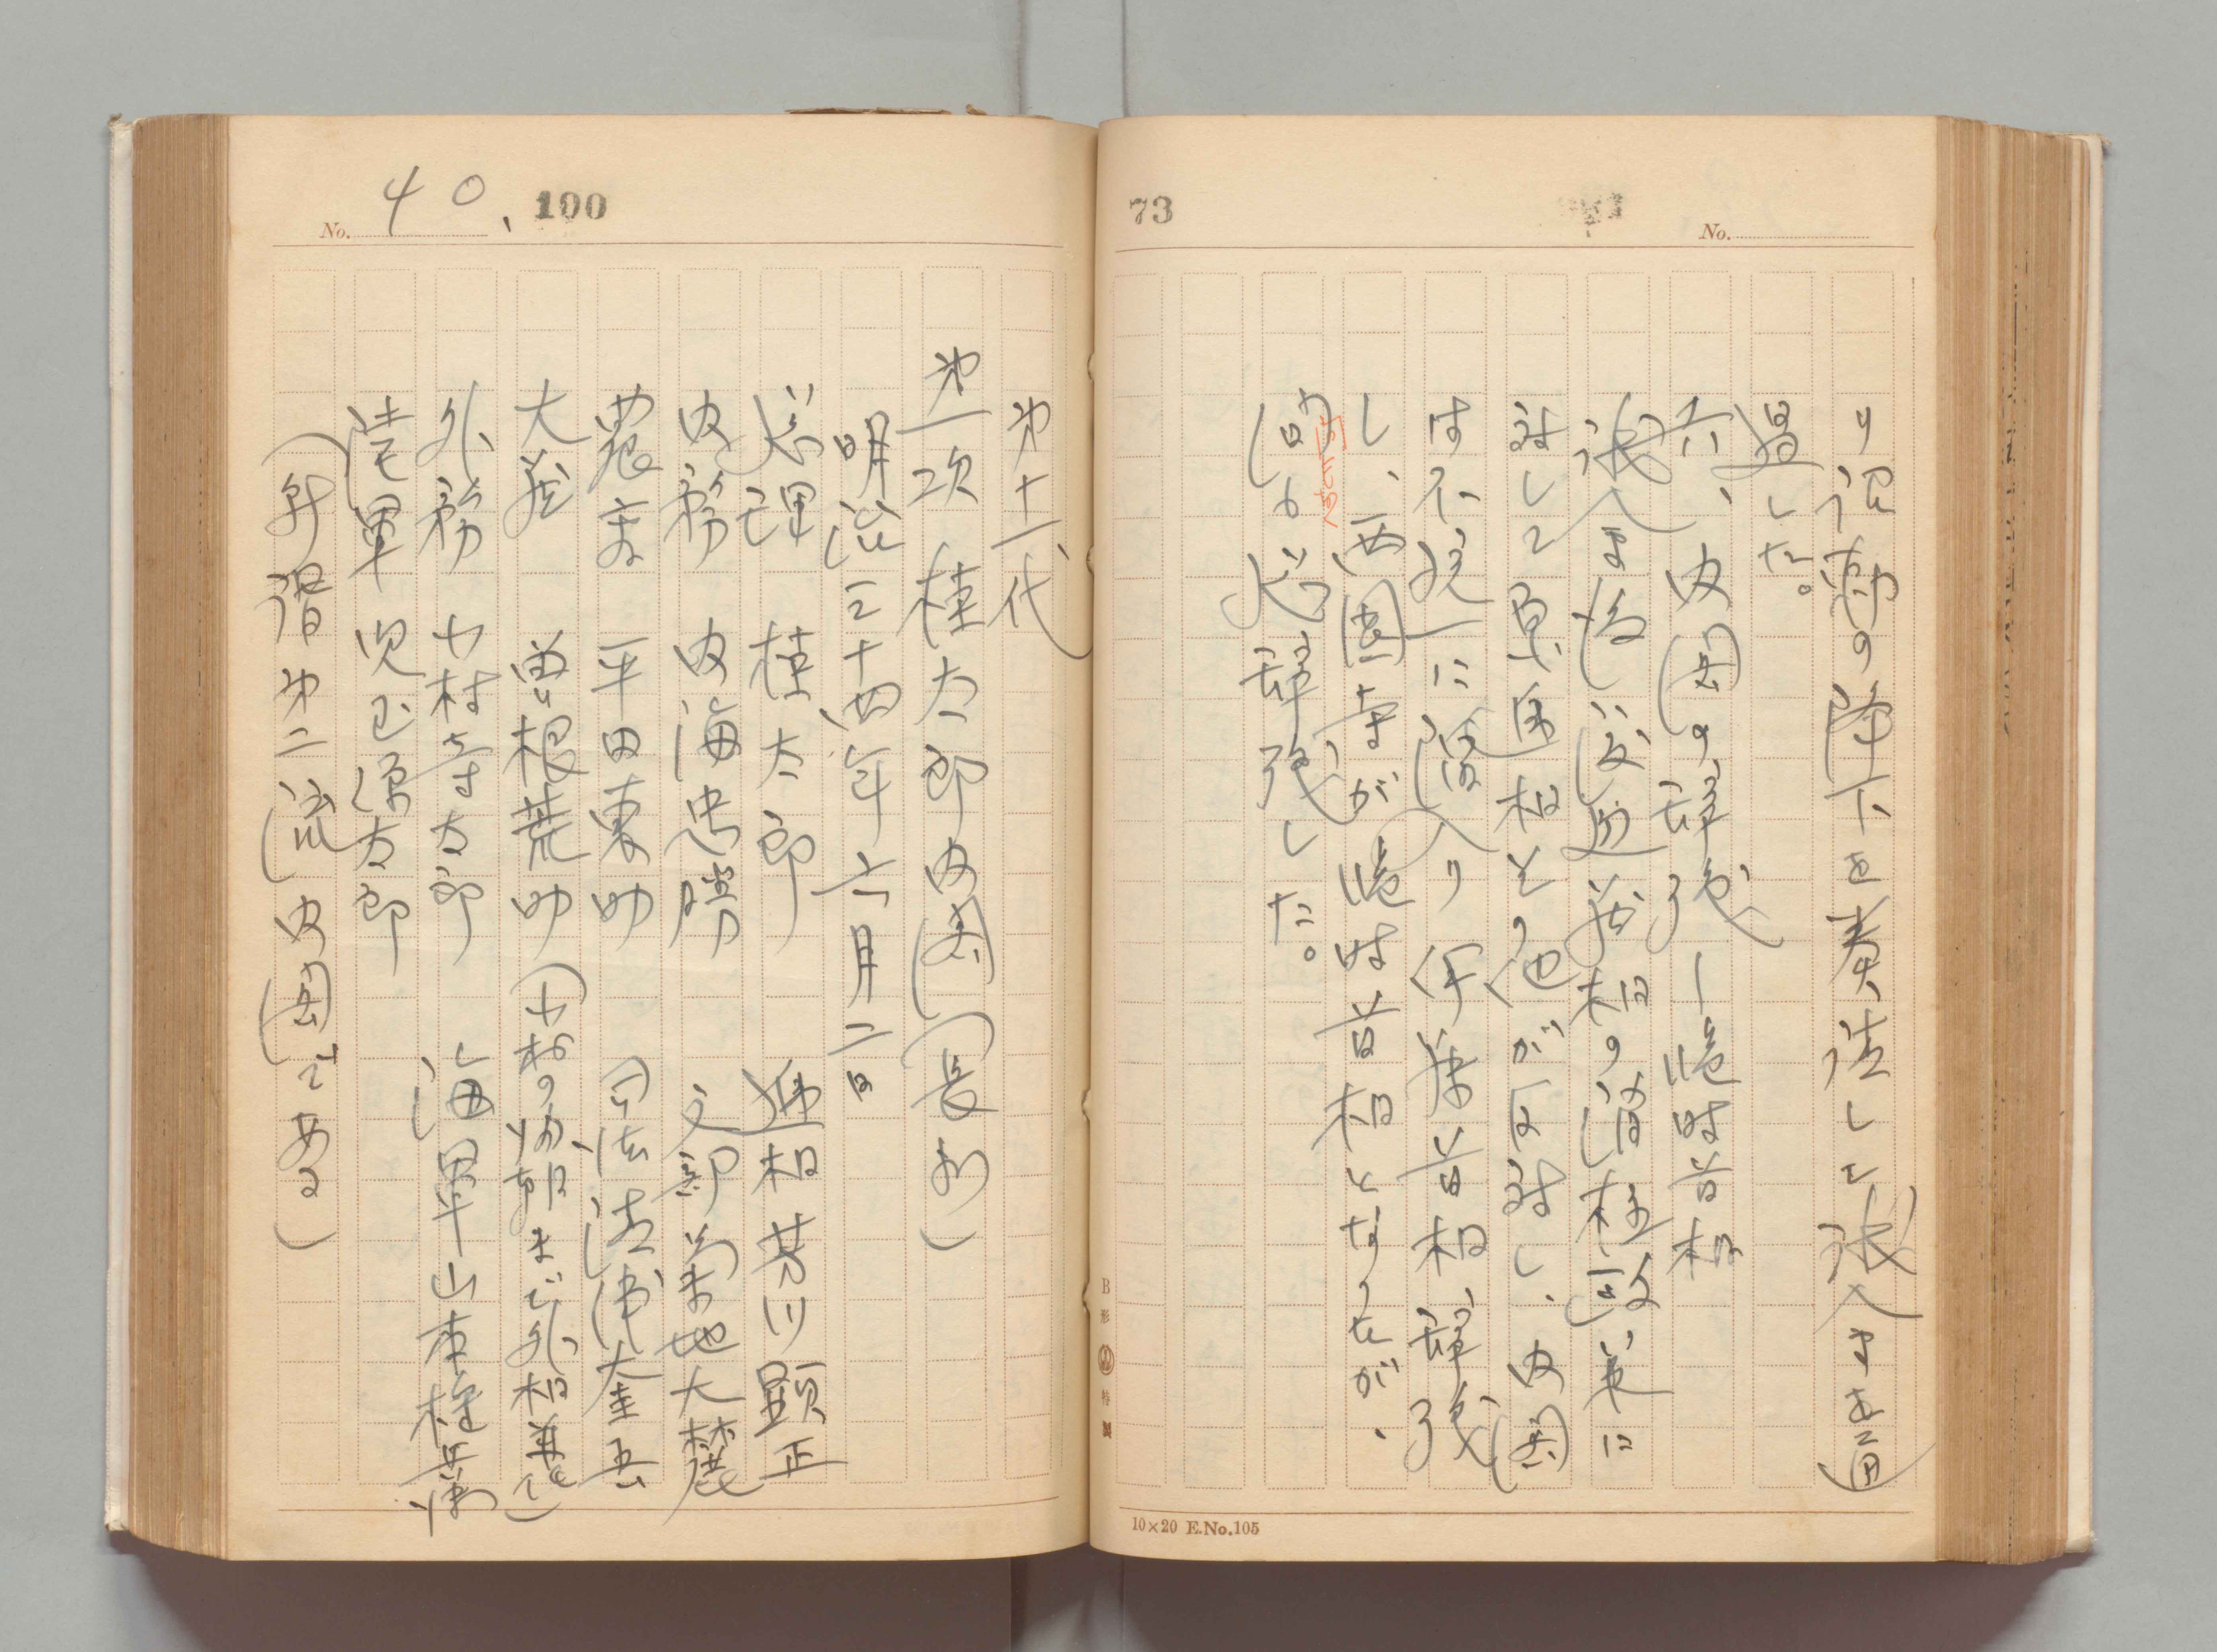 73
No.
り詔勅の降下を奏請して減入案を通
過した。
六、内閣の辞職―臨時首相
議会後渡辺蔵相の消極政策に
対して 原逓相とう他が反対し、内閣
は不統一に陥入り伊藤首相辞職
し、西園寺が臨時首相となったが、
間も総辞職した。
なく
B形 特製
10×20 E.No.105
No. 40. 100
第十一代
第一次 桂太郎内閣(長州)
明治三十四年六月二日
総理 桂太郎 逓相 芳川顕正
内務 内海忠勝 文部 菊地大麓
農商 平田東助 司法 清浦奎吾
大蔵 曽根荒助(小村の帰朝まで外相兼)
外務 小村寿太郎 海軍 山本権兵衛
陸軍 児玉源太郎
(所謂第二流内閣である)